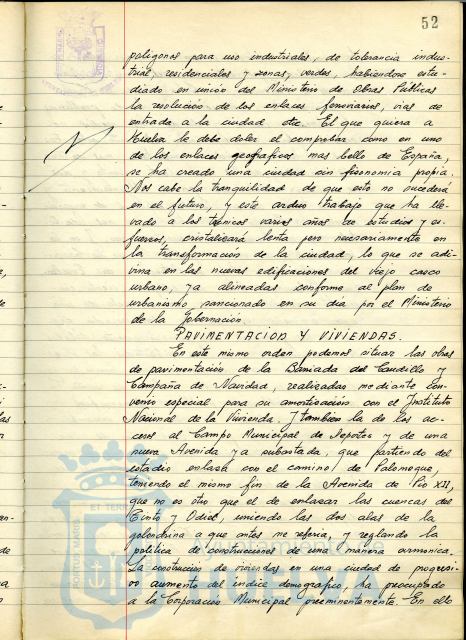 52
poligonos para uso industriales, de tolerancia indus-
trial, residenciales y zonas, verdes, habiendose estu-
diado en union del Ministerio de Obras Publicas
la resolución de los enlaces ferroviarios, vias de
entrada a la ciudad etc. El que quiera a
Huelva le debe doler el comprobar como en uno
de los enlaces geograficos mas bello de España,
se ha creado una ciudad sin fisonomia propia.
Nos cabe la tranquilidad de que esto no sucederá
en el futuro, y este arduo trabajo que ha lle-
vado a los técnicos varios años de estudios y es-
fuerzos, cristalizará lenta pero necesariamente en
la transformación de la ciudad, lo que se adi-
vina en las nuevas edificaciones del viejo casco
urbano, ya alineadas conforme al plan de
urbanismo sancionado en su dia por el Ministerio
de la Gobernación.
PAVIMENTACION Y VIVIENDAS.
En este mismo orden podemos situar las obras
de pavimentación de la Barriada del Caudillo y
Campaña de Navidad, realizadas mediante con-
venio especial para su amortización con el Instituto
Nacional de la Vivienda. Y tambien la de los ac-
cesos al Campo Municipal de Deportes y de una
nueva Avenida ya subastada, que partiendo del
estadio enlaza con el camino de Palomeque,
teniendo el mismo fin de la Avenida de Pio XII,
que no es otro que el de enlazar las cuencas del
Tinto y Odiel, uniendo las dos alas de la
golondrina a que antes me referia, y reglando la
politica de construcciones de una manera armonica.
La construcción de viviendas en una ciudad de progresi-
vo aumento del indice demografico, ha preocupado
a la Corporación Municipal preeminentemente. En ello